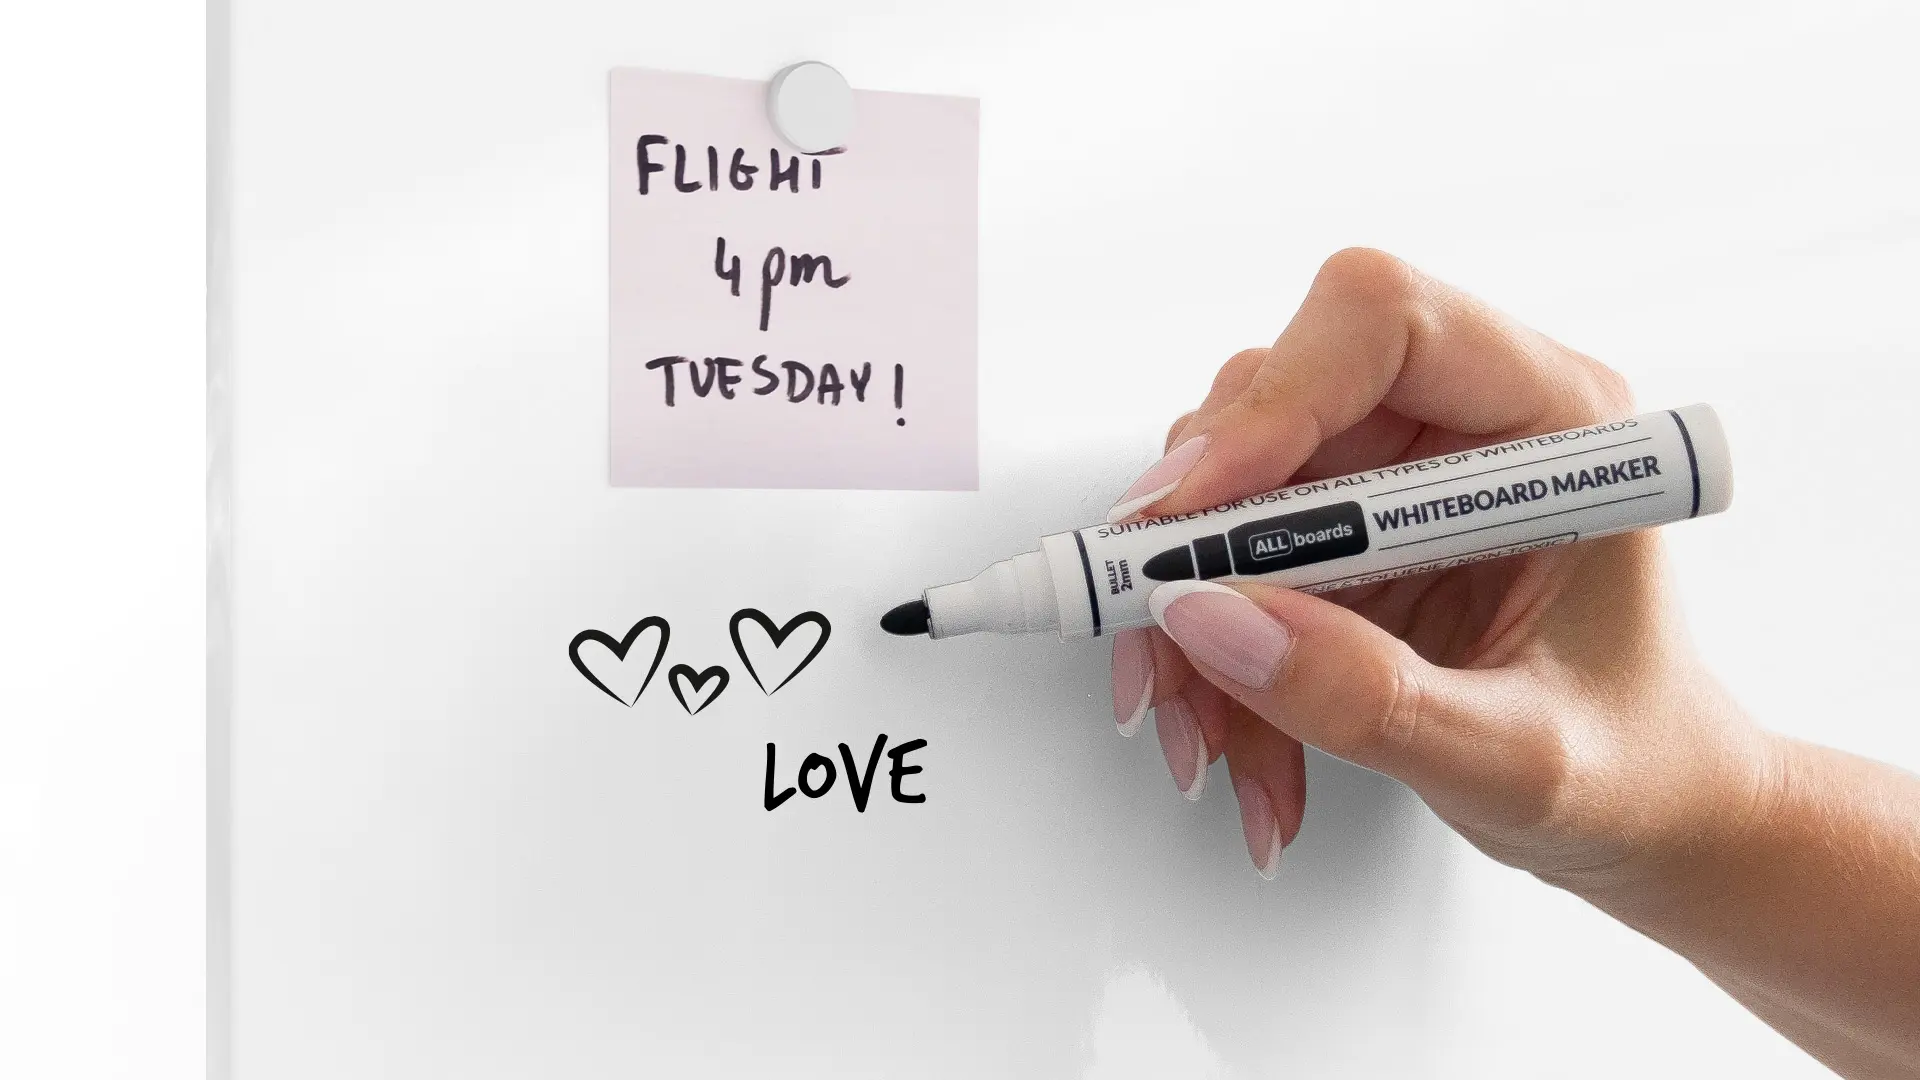 FLIGHT
4 pm
TUESDAY!
SUITABLE FOR USE ON ALL TYPES OF WHITEBOARDS
WHITEBOARD MARKER
ALL boards
BULLET
2mm
TOLUENE/NON-TOXIC
LOVE